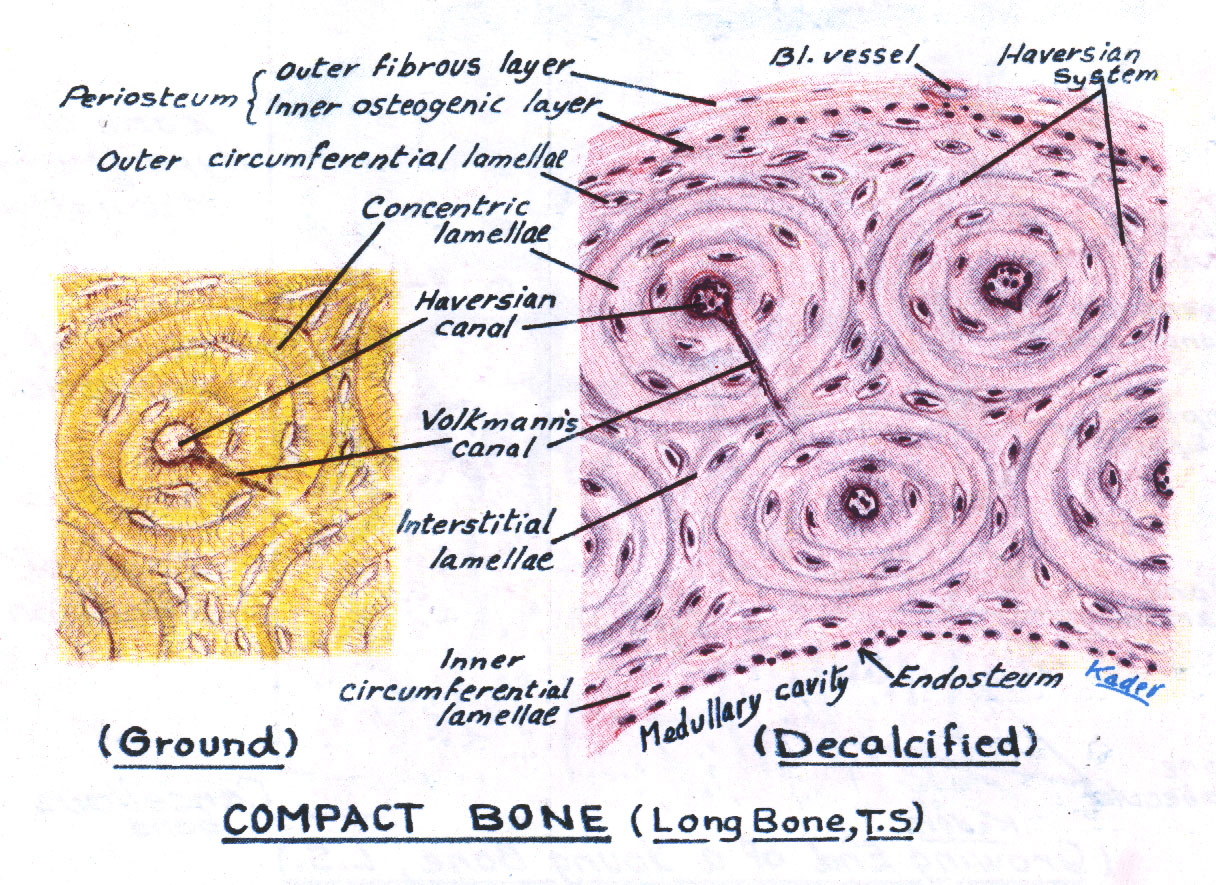 Bl. vessel
Haversian
System
Outer fibrous layer
Periosteum { Inner osteogenic layer
Outer circumferential lamellae
Concentric
lamellae
Haversian
canal
Volkmann's
canal
Interstitial
lamellae
Inner
circumferential
lamellae
Medullary cavity
Endosteum
Kader
(Ground)
(Decalcified)
COMPACT BONE (Long Bone, T.S)